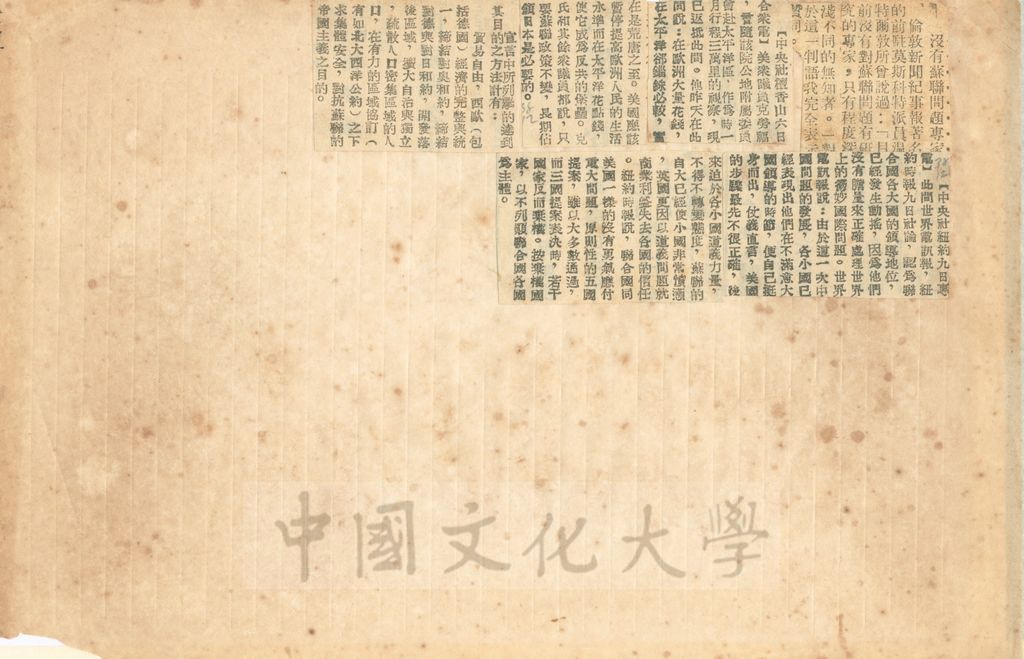 沒有蘇聯問題專家
倫敦新聞紀事報著名
的前駐莫斯科特派員溫
特爾敦所曾說過：「目
前沒有對蘇聯問題有研
究的專家，只有程度深
淺不同的無知者。」對
於這一判語我完全表示
【中央社檀香山六日
合衆電】美衆議員克勞福
，曾隨該院公地附屬委員
會赴太平洋區，作爲時一
月行程三萬里的視察，現
已返抵此間。他昨天在此
間說：在歐洲大量花錢，
在太平洋却錙銖必較，實
在是荒唐之至。美國應該
暫停提高歐洲人民的生活
水準而在太平洋花點錢，
使它成爲反共的堡壘。克
氏和其餘衆議員都說，只
要蘇聯政策不變，長期佔
領日本是必要的。
宣言中所列舉的達到
其目的之方法計有：
貿易自由，西歐（包
括德國）經濟的完整與統
一，締結對奧和約，締結
對德與對日和約，開發落
後區域，擴大自治與獨立
，疏散人口密集區域的人
口，在有力的區域協訂（
有如北大西洋公約）之下
求集體安全，對抗蘇聯的
帝國主義之目的。
【中央社紐約九日專
電】此間世界電訊報，紐
約時報九日社論，認爲聯
合國各大國的領導地位，
已經發生動搖，因爲他們
沒有膽量來正確處理世界
上的微妙國際問題。世界
電訊報說：由於這一次中
國問題的發展，各小國已
經表現出他們在不滿意大
國領導的時節，便自己挺
身而出，仗義直言，美國
的步驟最先不很正確，後
來迫於各小國道義力量，
不得不轉變態度，蘇聯的
自大已經使小國非常憤懣
，英國更因以道義問題就
商業利益失去各國的信任
。紐約時報說，聯合國同
美國一樣的沒有勇氣應付
重大問題，原則性的五國
提案，雖以大多數通過，
而三國提案表決時，若干
國家反而棄權。按棄權國
家，以不列顛聯合國各國
爲主體。
中國文化大學